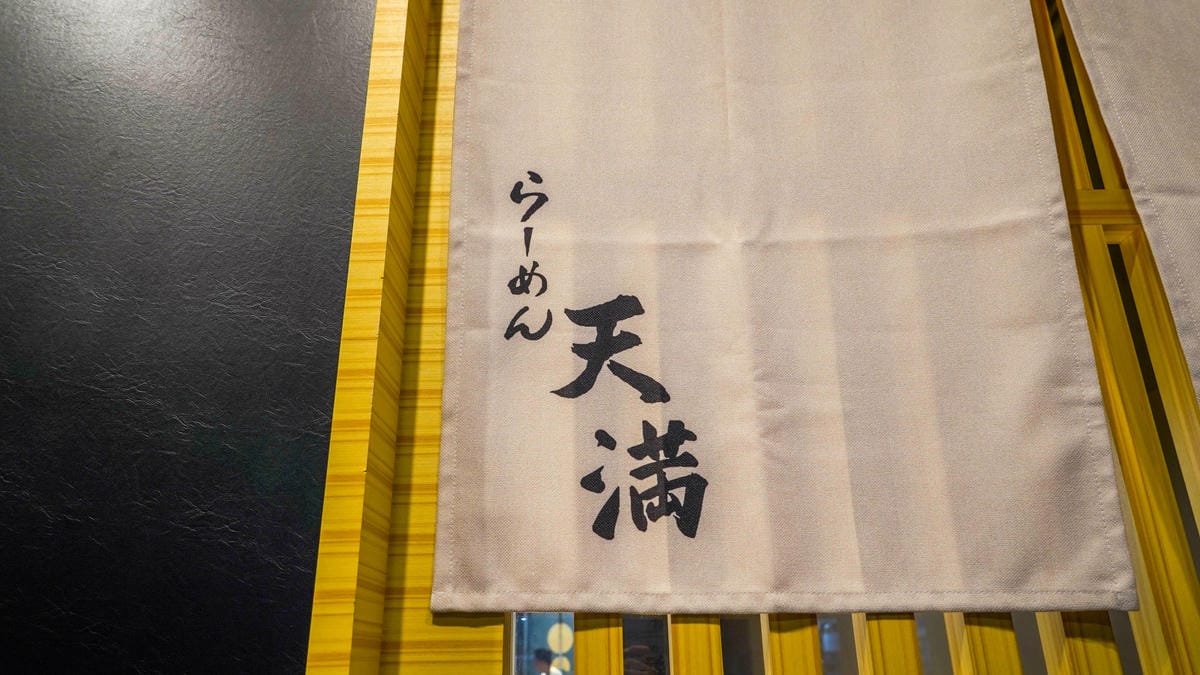 らーめん
天満